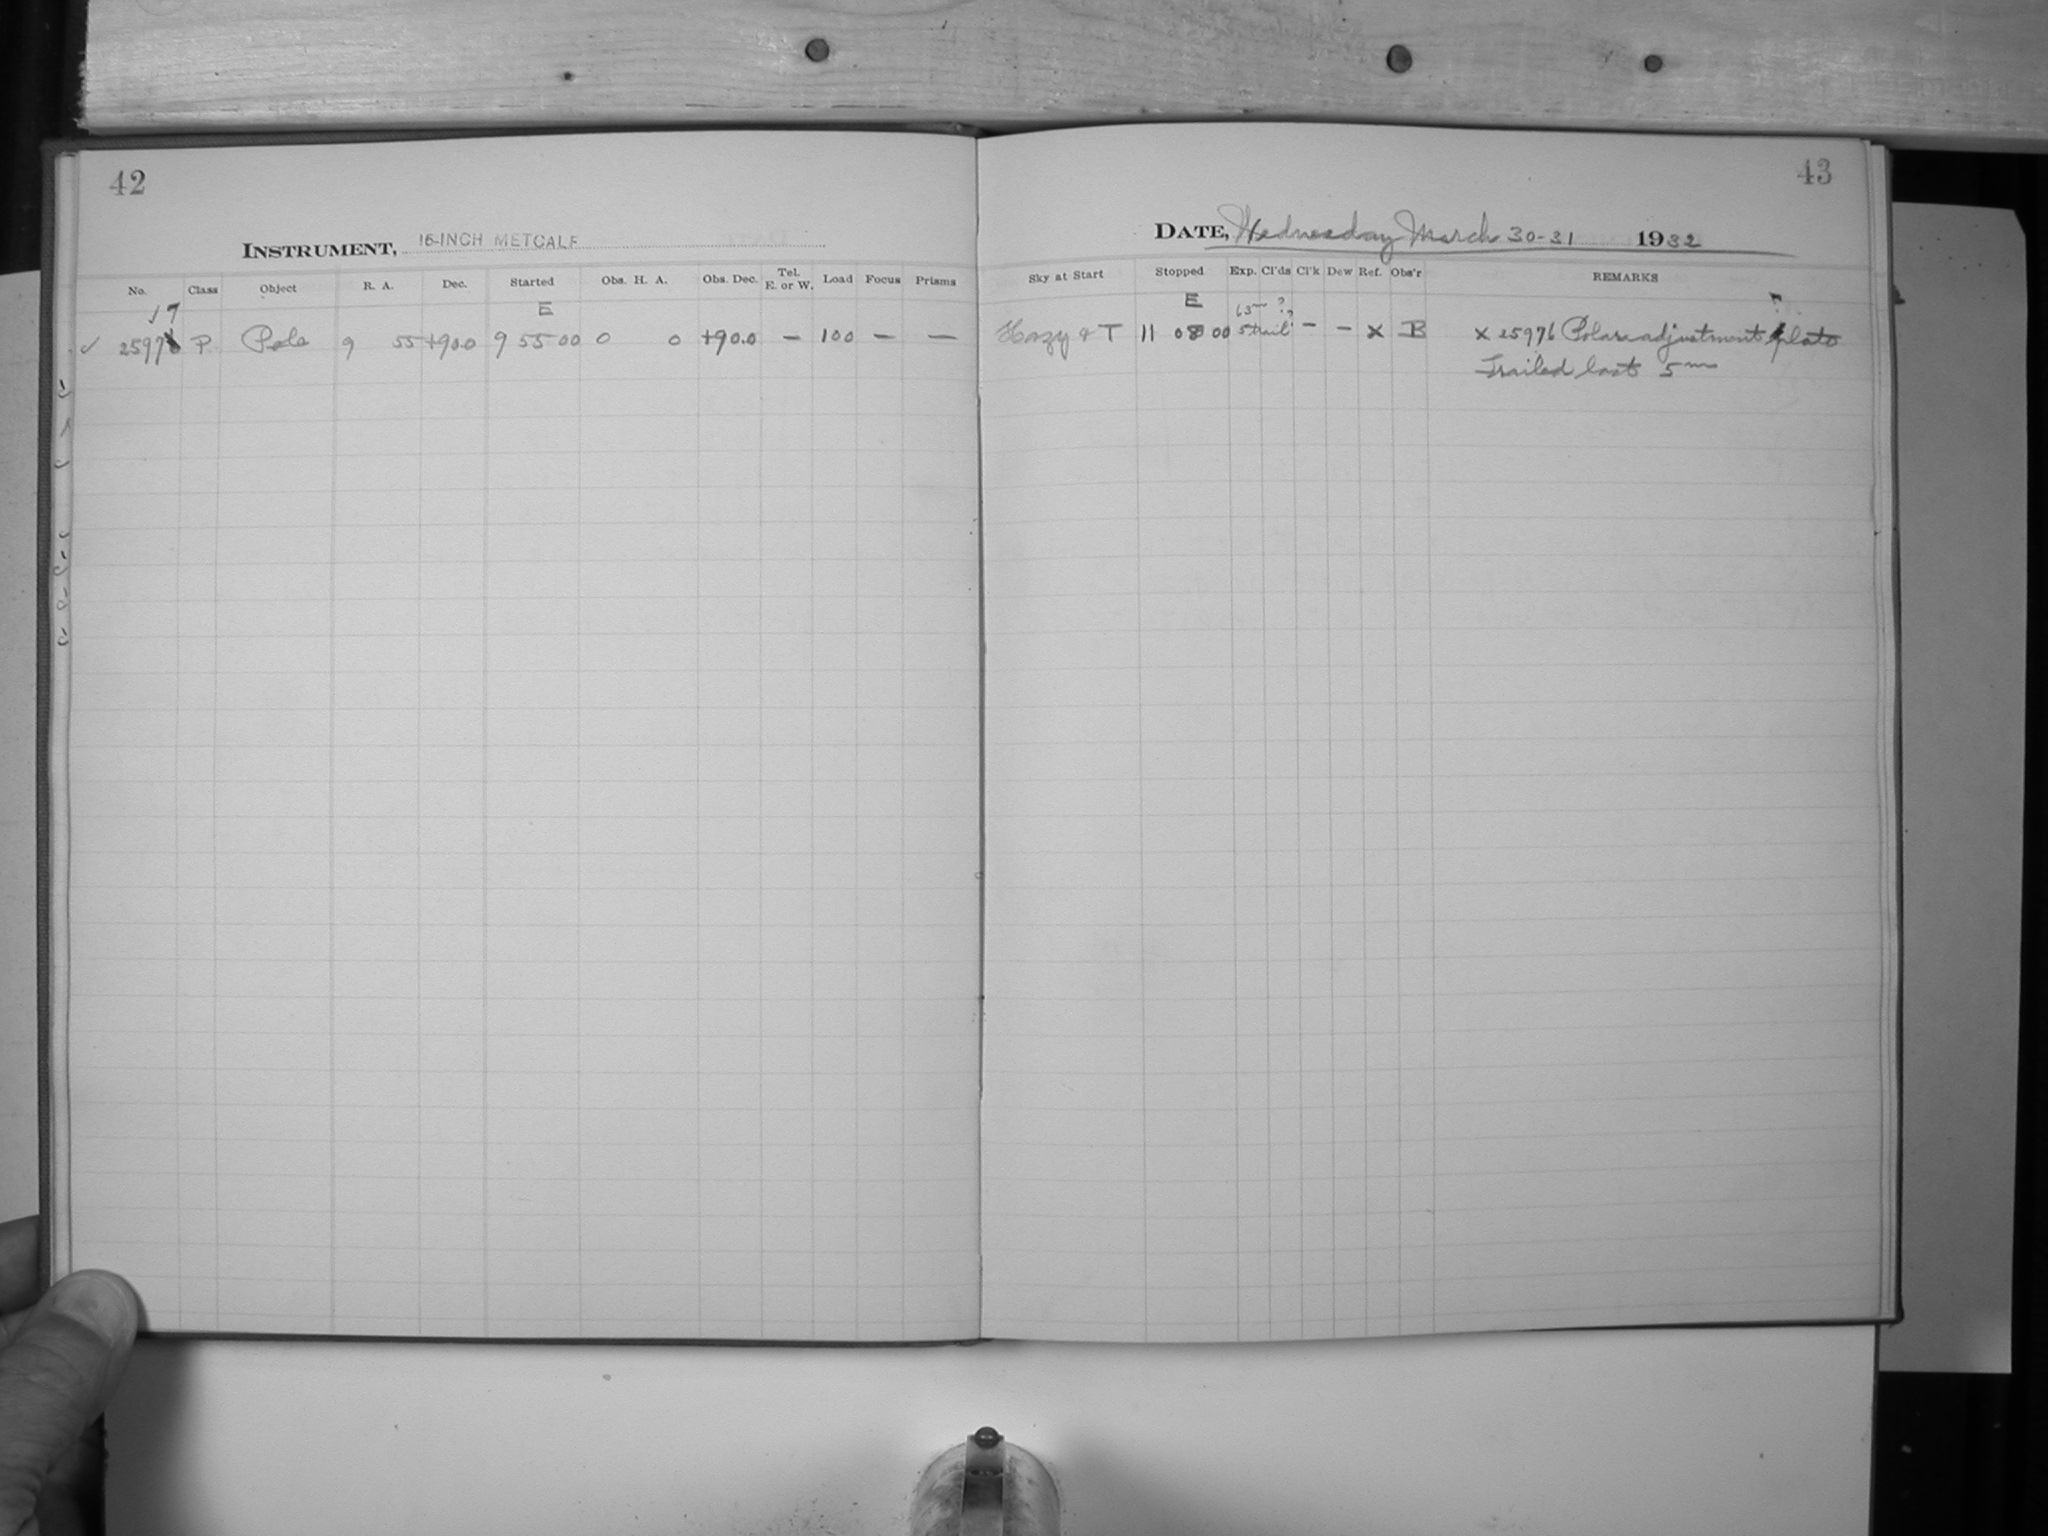 42
INSTRUMENT, 16-INCH METCALF
No. Class Object R. A. Dec. Started Obs. H. A. Obs. Dec. Tel. E. or W. Load Focus Prisms
✓ 7 E
✓ 25976 P Pole 9 55 +90.0 9 55 00 0 0 +90.0 — 100 — —
43
DATE, Wednesday March 30-31 1932
Sky at Start Stopped Exp. Cl'ds Cl'k Dew Ref. Obs'r REMARKS
E 63m ?
Hazy & T 11 08 00 5 trail ? — — x B x 25976 Polar adjustment plate
Trailed last 5m